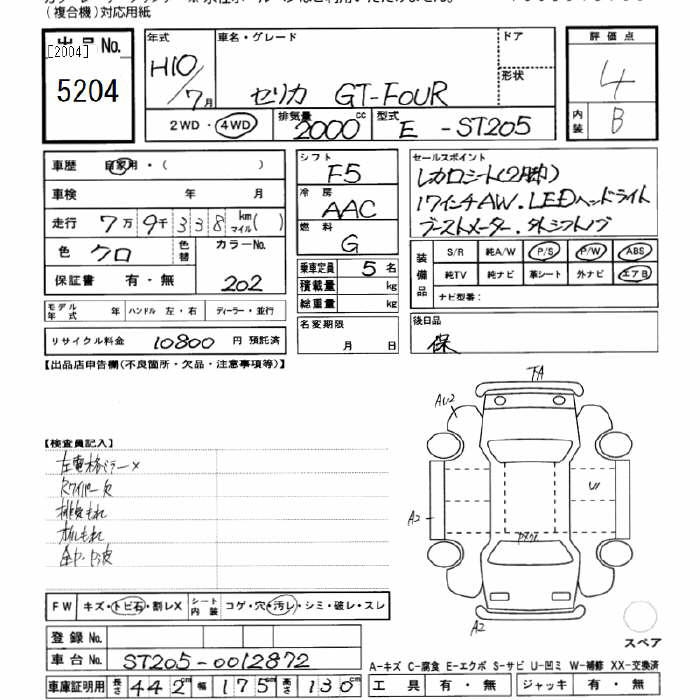 (複合機)対応用紙
出品No.
[2004]
5204
年式
H10/7月
車名・グレード
セリカ GT-FOUR
ドア
形状
2WD・4WD
排気量
2000cc
型式
E - ST205
評価点
4
内装
B
車歴 自家用・( )
車検 年 月
走行 7万9千338km マイル( )
色 クロ 色替 カラーNo. 202
保証書 有・無
モデル年式 年 ハンドル 左・右 ディーラー・並行
リサイクル料金 10800 円 預託済
シフト
F5
冷房
AAC
燃料
G
乗車定員 5名
積載量 kg
総重量 kg
名変期限
月 日
セールスポイント
レカロシート(2脚)
17インチAW.LEDヘッドライト
ブーストメーター.外シフトノブ
装備品
S/R 純A/W P/S P/W ABS
純TV 純ナビ 革シート 外ナビ エアB
ナビ型番:
後日品
保
【出品店申告欄(不良箇所・欠品・注意事項等)】
【検査員記入】
左電格ミラー×
Rワイパー欠
排気もれ
オイルもれ
FW キズ・トビ石・割レX シート内装 コゲ・穴・汚レ・シミ・破レ・スレ
登録No.
車台No. ST205-0012872
車庫証明用 長さ 442cm 幅 175cm 高さ 130cm
A
AU2
A2
U
A2
スペア
A-キズ C-腐食 E-エクボ S-サビ U-凹ミ W-補修 XX-交換済
工具 有・無 ジャッキ 有・無